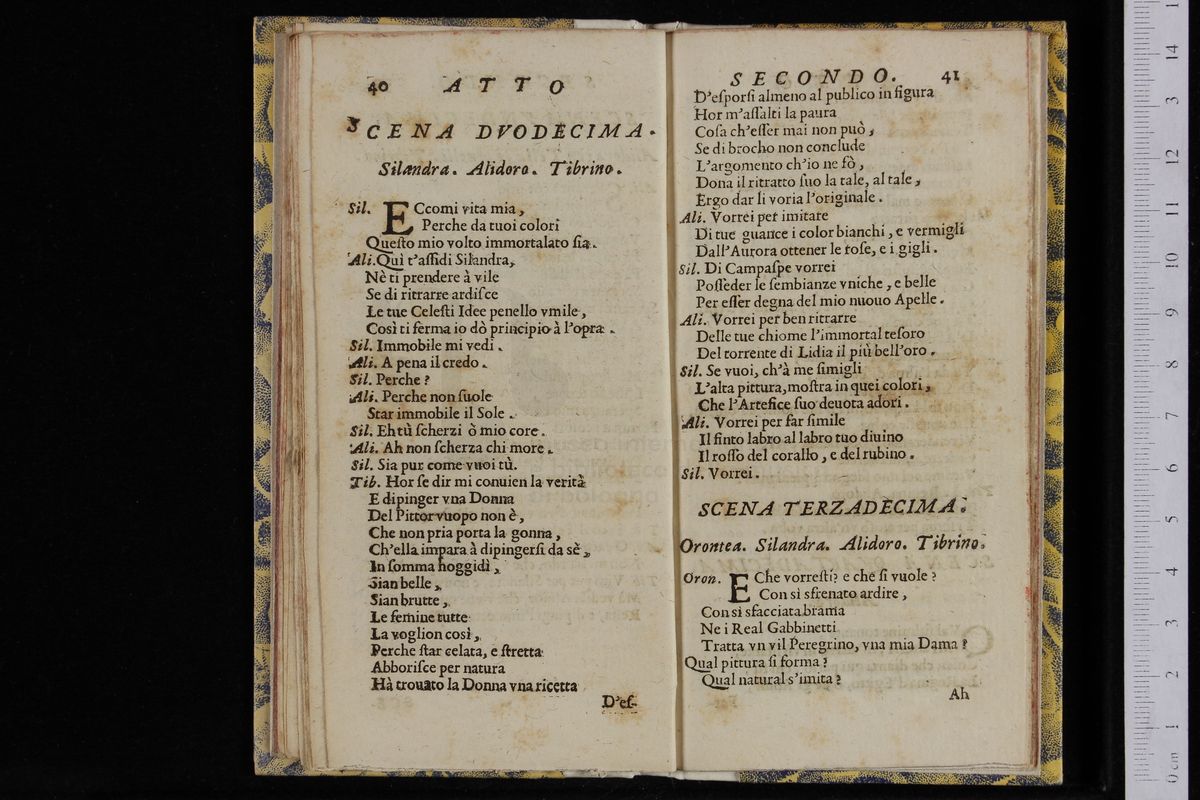 40 ATTO
SCENA DVODECIMA.
Silandra. Alidoro. Tibrino.
Sil. ECcomi vita mia,
Perche da tuoi colori
Queſto mio volto immortalato ſia.
Ali. Quì t'aſſidi Silandra,
Nè ti prendere à vile
Se di ritrarre ardiſce
Le tue Celeſti Idee penello vmile,
Così ti ferma io dò principio à l'opra.
Sil. Immobile mi vedi.
Ali. A pena il credo.
Sil. Perche?
Ali. Perche non ſuole
Star immobile il Sole.
Sil. Eh tù ſcherzi ò mio core.
Ali. Ah non ſcherza chi more.
Sil. Sia pur come vuoi tù.
Tib. Hor ſe dir mi conuien la verità
E dipinger vna Donna
Del Pittor vuopo non è,
Che non pria porta la gonna,
Ch'ella impara à dipingerſi da sè,
In ſomma hoggidì,
Sian belle,
Sian brutte,
Le femine tutte
La voglion così,
Perche ſtar celata, e ſtretta
Abboriſce per natura
Hà trouato la Donna vna ricetta
D'eſ-
SECONDO. 41
D'eſporſi almeno al publico in figura
Hor m'aſſalti la paura
Coſa ch'eſſer mai non può,
Se di brocho non conclude
L'argomento ch'io ne fò,
Dona il ritratto ſuo la tale, al tale,
Ergo dar li voria l'originale.
Ali. Vorrei per imitare
Di tue guance i color bianchi, e vermigli
Dall'Aurora ottener le roſe, e i gigli.
Sil. Di Campaſpe vorrei
Poſſeder le ſembianze vniche, e belle
Per eſſer degna del mio nuouo Apelle.
Ali. Vorrei per ben ritrarre
Delle tue chiome l'immortal teſoro
Del torrente di Lidia il più bell'oro.
Sil. Se vuoi, ch'à me ſimigli
L'alta pittura, moſtra in quei colori,
Che l'Artefice ſuo deuota adori.
Ali. Vorrei per far ſimile
Il finto labro al labro tuo diuino
Il roſſo del corallo, e del rubino.
Sil. Vorrei.
SCENA TERZADECIMA.
Orontea. Silandra. Alidoro. Tibrino.
Oron. E Che vorreſti? e che ſi vuole?
Con sì sfrenato ardire,
Con sì sfacciata brama
Ne i Real Gabbinetti
Tratta vn vil Peregrino, vna mia Dama?
Qual pittura ſi forma?
Qual natural s'imita?
Ah
0 cm 1 2 3 4 5 6 7 8 9 10 11 12 3 14 1